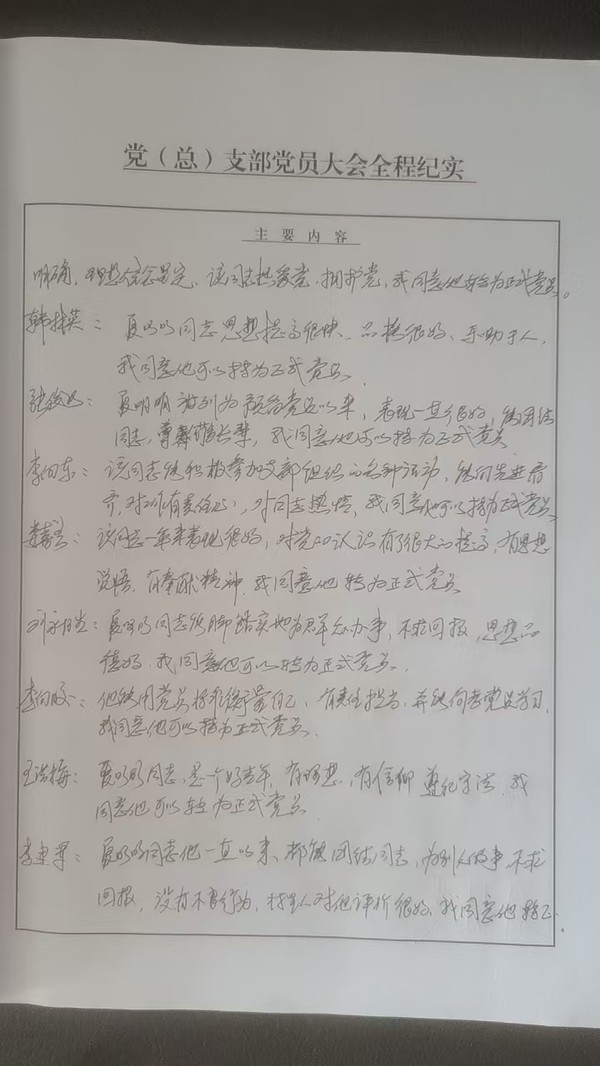 党（总）支部党员大会全程纪实
主要内容
明确，理想信念坚定，该同志热爱党，拥护党，我同意他转为正式党员。
韩 英：夏明明同志思想提高很快，品格很好，乐助于人，
我同意他可以转为正式党员。
张 ：夏明明被列为预备党员以来，表现一直很好，能团结
同志，尊 长辈，我同意他可以转为正式党员
李向东：该同志能积极参加支部组织的各种活动，能向先进看
齐，对工作有责任心，对同志热情，我同意他可以转为正式党员
：该同志一年来表现很好，对党的认识有了很大的提高，有思想
觉悟，有奉献精神，我同意他转为正式党员
刘 ：夏明明同志能脚踏实地为群众办事，不求回报，思想品
德好，我同意他可以转为正式党员。
李向 ：他能用党员标准衡量自己，有责任担当，并能向老党员学习，
我同意他可以转为正式党员
王 梅：夏明明同志，是一个好青年，有理想，有信仰，遵纪守法，我
同意他可以转为正式党员
李 ：夏明明同志他一直以来，都能团结同志，为别人做事，不求
回报，没有不良行为，村里人对他评价很好，我同意他转正